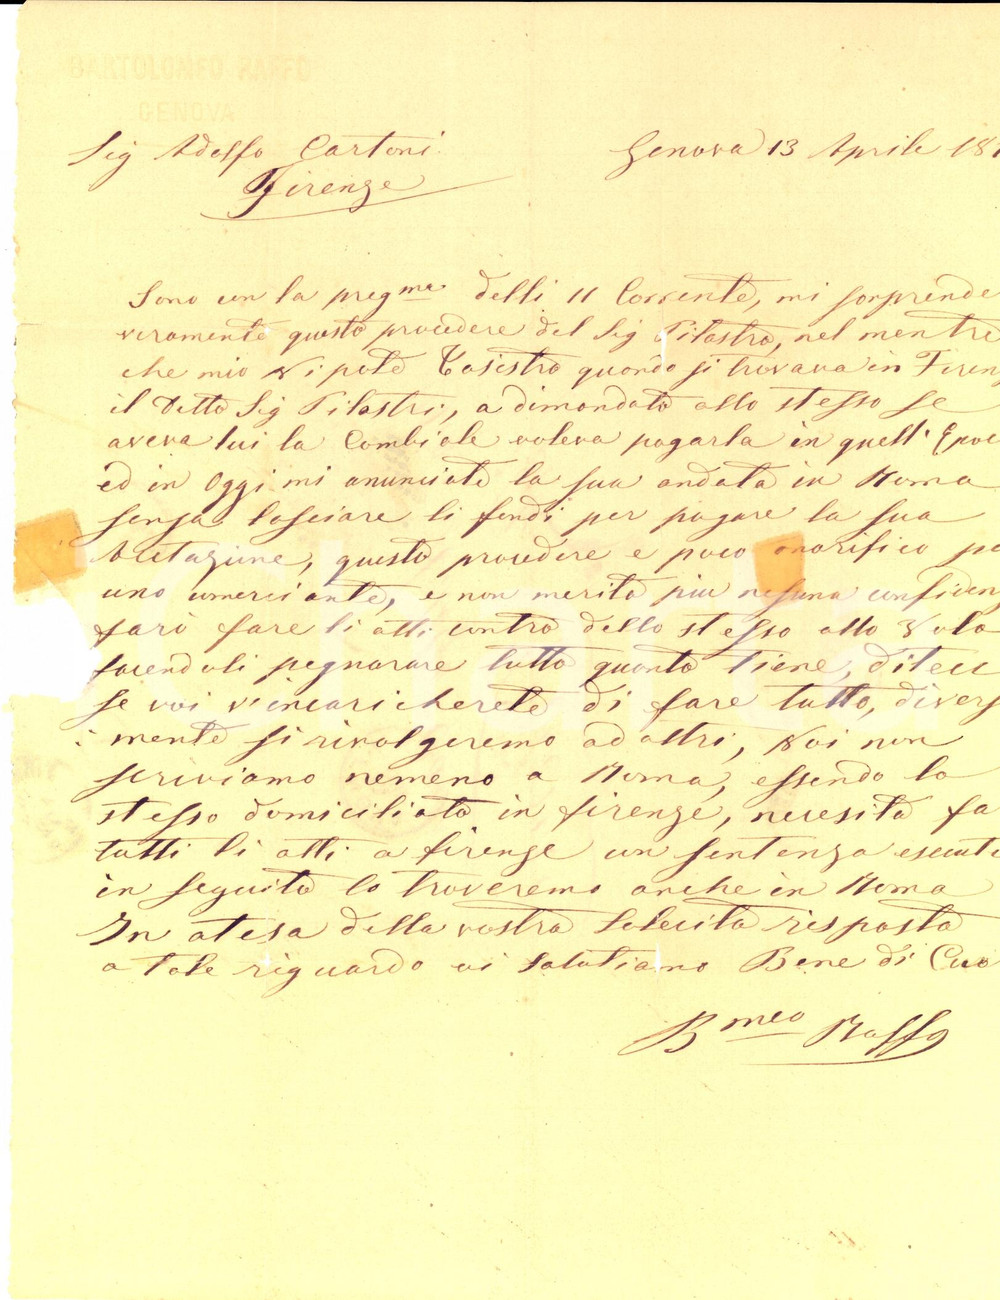 BARTOLOMEO RAFFO
GENOVA
Sig Adolfo Cartoni
Genova 13 Aprile 18
Firenze
Sono con la pregma delli 11 Corrente, mi sorprende
veramente questo procedere del Sig Pilastro, nel mentre
che mio Nipote quando si trovava in Firen
il Detto Sig Pilastri, a dimondato allo stesso se
aveva lui la Combiale voleva pagarla in quell' Epoc
ed in Oggi mi anunciate la sua andata in Roma
senza lasciare li fondi per pagare la sua
Acetazione, questo procedere e poco onorifico pe
uno comerciante, e non merita piu nesuna confiden
farò fare li atti contro dello stesso allo Volo
facendoli pegnorare tutto quanto tiene, diteci
se voi v'incaricherete di fare tutto, divers
mente si rivolgeremo ad altri, Noi non
scriviamo nemeno a Roma, essendo lo
stesso domiciliato in firenze, necesita fa
tutti li atti a firenze con sentenza esecut
in seguito lo troveremo anche in Roma
In atesa della vostra Solecita risposta
a tale riguardo vi salutiamo Bene di Cuo
Bmeo Raffo